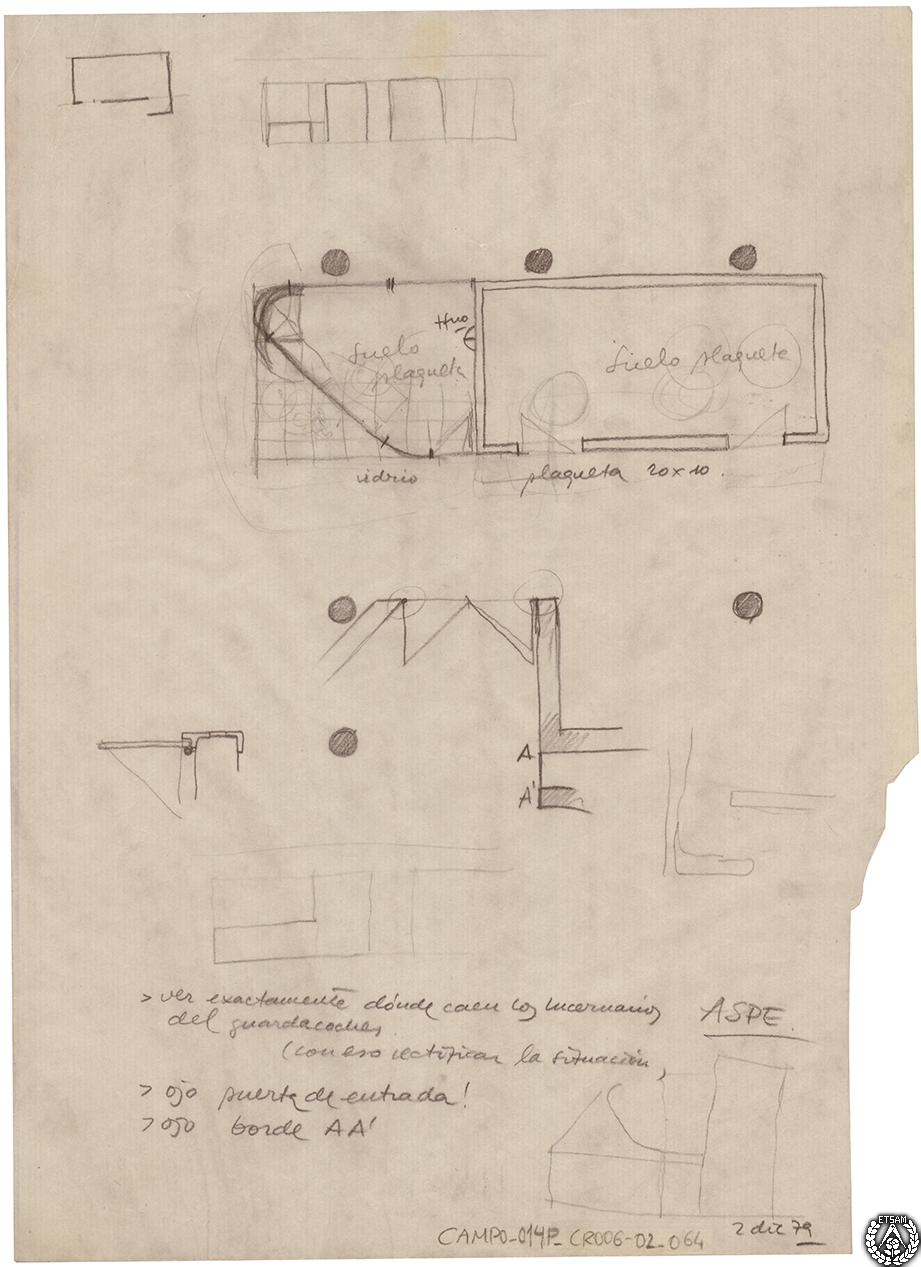 Hno
Suelo
plaqueta
Suelo plaqueta
vidrio
plaqueta 20x10.
A
A'
> ver exactamente dónde caen los lucernarios
del guardacoches.
(con eso rectificar la situación)
ASPE.
> ojo puerta de entrada!
> ojo borde AA'
CAMPO-014P_CR006-02_064
2 dic 79
ETSAM